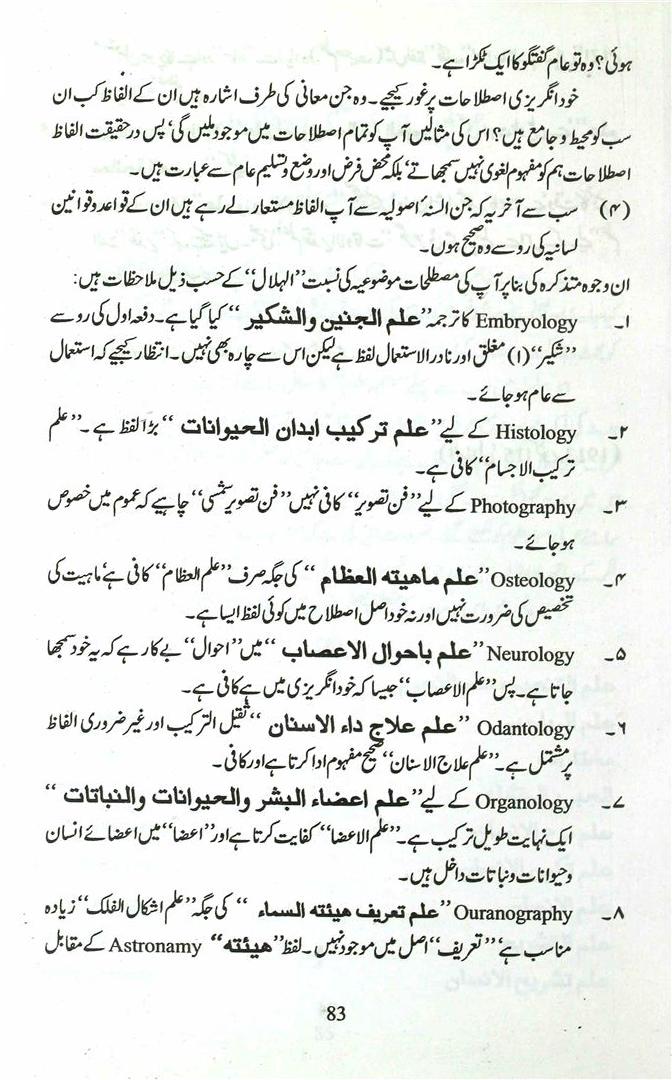 ہوئی؟ وہ تو عام گفتگو کا ایک ٹکڑا ہے۔
خود انگریزی اصطلاحات پر غور کیجیے۔ وہ جن معانی کی طرف اشارہ ہیں ان کے الفاظ کب ان
سب کو محیط و جامع ہیں؟ اس کی مثالیں آپ کو تمام اصطلاحات میں موجود ملیں گی، پس درحقیقت الفاظ
اصطلاحات ہم کو مفہوم لغوی نہیں سمجھاتے، بلکہ محض فرض اور وضع و تسلیم عام سے عبارت ہیں۔
(۴) سب سے آخر یہ کہ جن السنۂ اصولیہ سے آپ الفاظ مستعار لے رہے ہیں ان کے قواعد و قوانین
لسانیہ کی رو سے وہ صحیح ہوں۔
ان وجوہ متذکرہ کی بنا پر آپ کی مصطلحات موضوعیہ کی نسبت "الہلال" کے حسب ذیل ملاحظات ہیں:
۱۔ Embryology کا ترجمہ "علم الجنین والشکیر" کیا گیا ہے۔ دفعہ اول کی رو سے
"شکیر" (۱) مغلق اور نادر الاستعمال لفظ ہے لیکن اس سے چارہ بھی نہیں۔ انتظار کیجیے کہ استعمال
سے عام ہو جائے۔
۲۔ Histology کے لیے "علم ترکیب ابدان الحیوانات" بڑا لفظ ہے۔ "علم
ترکیب الاجسام" کافی ہے۔
۳۔ Photography کے لیے "فن تصویر" کافی نہیں "فن تصویر شمسی" چاہیے کہ عموم میں خصوص
ہو جائے۔
۴۔ Osteology "علم ماھیتہ العظام" کی جگہ صرف "علم العظام" کافی ہے، ماہیت کی
تخصیص کی ضرورت نہیں اور نہ خود اصل اصطلاح میں کوئی لفظ ایسا ہے۔
۵۔ Neurology "علم باحوال الاعصاب" میں "احوال" بے کار ہے کہ یہ خود سمجھا
جاتا ہے۔ پس "علم الاعصاب" جیسا کہ خود انگریزی میں ہے کافی ہے۔
۶۔ Odantology "علم علاج داء الاسنان" ثقیل الترکیب اور غیر ضروری الفاظ
پر مشتمل ہے۔ "علم علاج الاسنان" صحیح مفہوم ادا کرتا ہے اور کافی۔
۷۔ Organology کے لیے "علم اعضاء البشر والحیوانات والنباتات"
ایک نہایت طویل ترکیب ہے۔ "علم الاعضا" کفایت کرتا ہے اور "اعضا" میں اعضائے انسان
و حیوانات و نباتات داخل ہیں۔
۸۔ Ouranography "علم تعریف ھیئتہ السماء" کی جگہ "علم اشکال الفلک" زیادہ
مناسب ہے، "تعریف" اصل میں موجود نہیں۔ لفظ "ھیئتہ" Astronamy کے مقابل
83